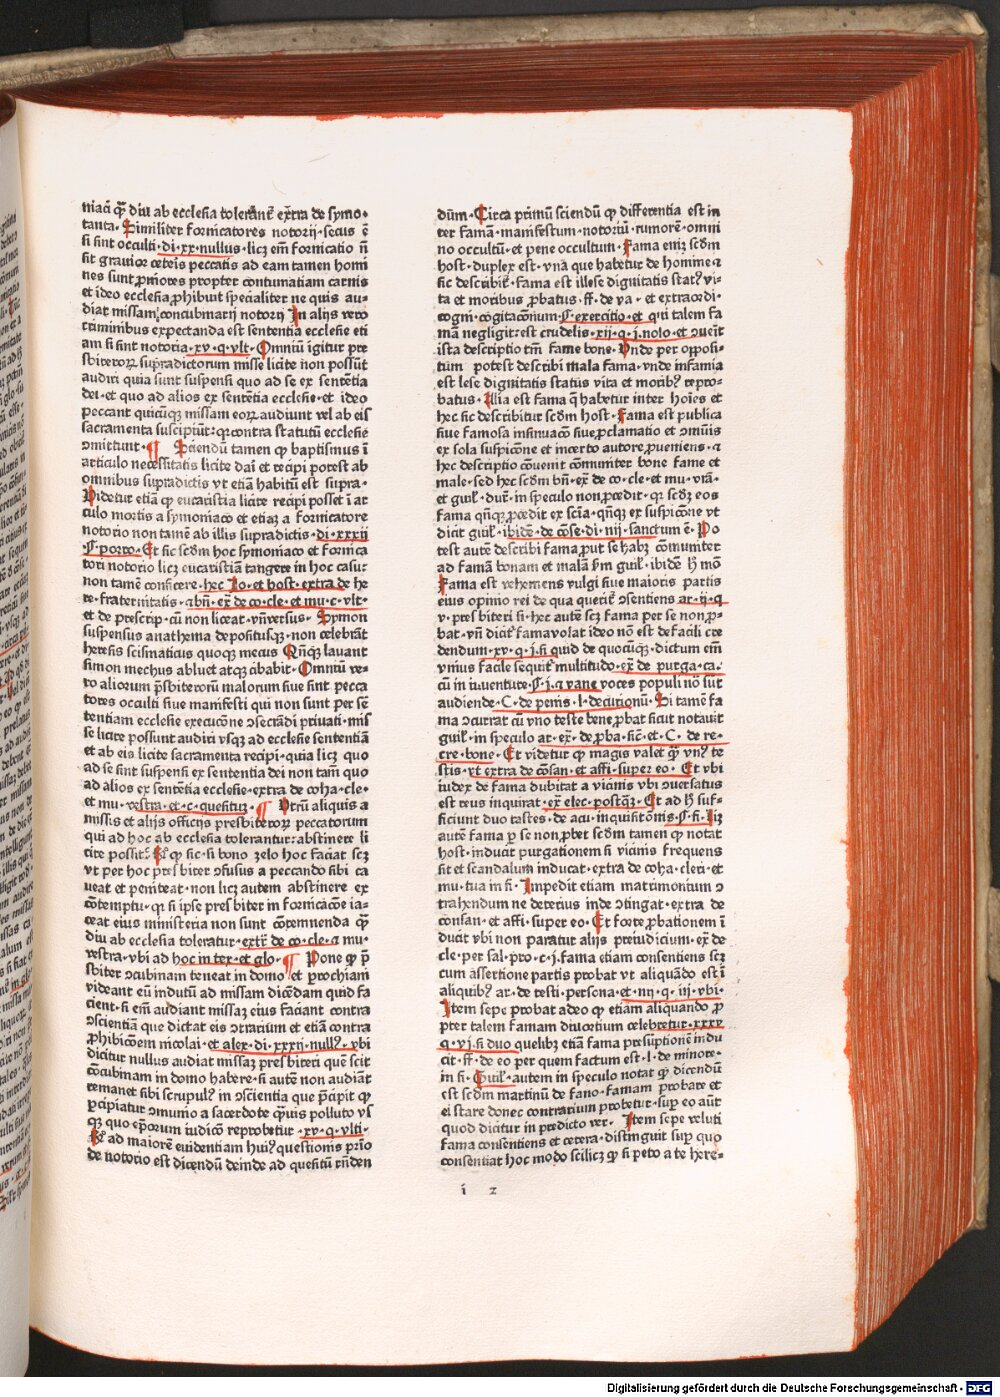 niaci q̃ diu ab ecclesia tolerant̃ extra de symo·
tanta· Similiter fornicatores notorij·secus ẽ
si sint occulti·di·xx·nullus·licꝫ em̃ fornicatio ñ
sit grauior ceteis peccatis ad eam tamen homi
nes sunt ꝓniores propter contumatiam carnis
et ideo ecclesia ꝓhibuit specialiter ne quis au-
diat missam concubinarij notorij In alijs vero
criminibus expectanda est sententia ecclesie eti
am si sint notoria·xv·q·vlt· Omniũ igitur pre
sbiteroꝝ supradictorum misse licite non possũt
audiri quia sunt suspensi quo ad se ex sentẽtia
dei·et quo ad alios ex sententia ecclesie·et ideo
peccant quicũqꝫ missam eorꝝ audiunt vel ab eis
sacramenta suscipiũt:qꝛ contra statutũ ecclesie
ↄmittunt· ¶ Sciendũ tamen ꝙ baptismus ĩ
articulo necessitatis licite dari et recipi potest ab
omnibus supradictis vt etiã habitũ est supra·
Videtur etiã ꝙ eucaristia licite recipi posset ĩ ar
culo mortis a symoniaco et etiaꝫ a fornicatore
notorio non tamẽ ab illis supradictis·di·xxxij
¶·porro· Et sic scd̃m hoc symoniaco et fornica
tori notorio licꝫ eucaristiam tangere in hoc casu:
non tamẽ conficere·hec Jo·et host·extra de he
re·fraternitatis·⁊ bñ·ex̃ de co·cle·et mu·c·vlt·
et de prescrip·cũ non liceat·vn̄versus· Symon
suspensus anathema depositusqꝫ·non celebrãt
heresis scismaticus quoqꝫ mecus Qñqꝫ lauant
simon mechus abluet atqꝫ cibabit· Omniũ ve-
ro alioꝛum pr̃sbiteroꝛũ malorum siue sint pecca
tores occulti siue manifesti qui non sunt per sẽ
tentiam ecclesie execucõne ↄsecrãdi priuati·mis
se licite possunt audiri vsqꝫ ad ecclesie sententiã
et ab eis licite sacramenta recipi·quia licꝫ quo
ad se sint suspensi ex sententia dei non tam̃ quo
ad alios ex sentẽtia ecclesie·extra de coha·cle·
et mu·vestra·et·c·quesitur· ¶ Vtrũ aliquis a
missis et alijs officijs presbiteroꝝ peccatorum
qui ad hoc ab ecclesia tolerantur:abstinere li
cite possit: R̃ ꝙ sic·si bono zelo hoc faciat scꝫ
vt per hoc presbiter ↄfusus a peccando sibi ca
ueat et peniteat·non licꝫ autem abstinere ex
cõtemptu·qꝛ si ipse presbiter in fornicacõe ia-
ceat eius ministeria non sunt cõtemnenda q̃
diu ab ecclesia toleratur·extr̃ de co·cle·⁊ mu·
vestra·vbi ad hoc in tex·et glo· ¶ Pone ꝙ p̃
sbiter ↄcubinam teneat in domo et prochiani
videant eũ indutũ ad missam dicẽdam quid fa
cient·si em̃ audiant missaꝫ eius faciant contra
ↄscientiãm que dictat eis ↄtrarium et etiã contra
ꝓhibicõem nicolai·et alex·di·xxxij·null⁹·vbi
dicitur nullus audiat missaꝫ presbiteri quẽ scit
cõcubinam in domo habere·si autẽ non audiãt
remanet sibi scrupul⁹ in ↄscientia que p̃cipit ꝙ
ꝑcipiatur ↄmunio a sacerdote q̃uis polluto vs
qꝫ quo ep̃coꝛum iudicõ reprobetur·xv·q·vlti·
R̃ ad maiorẽ euidentiam hui⁹ questionis prio
de notorio est dicendũ deinde ad quesitũ rñden
dũm· Circa primũ sciendũ ꝙ differentia est in
ter famã·manifestum·notoriũ·rumorẽ·omni
no occultũ·et pene occultum· Fama eniꝫ scd̃m
host·duplex est·vna que habetur de homine·⁊
sic describit̃·fama est illese dignitatis stat⁹ vi-
ta et moribus ꝓbatus·ff·de va·et extraordi·
cogni·cogitacõnum·¶·exercitio·et qui talem fa
mã negligit:est crudelis·xij·q·j·nolo·et ↄuenit
ista descriptio tm̃ fame bone· Vnde per oppoſi-
tum potest describi mala fama·vnde infamia
est lese dignitatis status vita et morib⁹ repro-
batus· Alia est fama q̃ habetur inter hoĩes et
hec sic describitur scd̃m host· Fama est publica
siue famosa insinuacõ siue ꝓclamatio et ↄmũis
ex sola suspicõne et incerto autore ꝓueniens·⁊
hec descriptio cõuenit cõmuniter bone fame et
male·sed hec scd̃m bñ·ex̃ de co·cle·et mu·vrã·
et guil·dur̃·in speculo non ꝓcedit·qꝛ scd̃ꝫ eos
fama qñqꝫ ꝓcedit ex scĩa·qñqꝫ ex suspicõne vt
dicit guil·ibidẽ·de cõse·di·iiij·sanctum ẽ· Po
test autẽ describi fama ꝓut se habꝫ cõmuniter
ad famã bonam et malã s̃m guil·ibidẽ hͦ mõ
Fama est vehemens vulgi siue maioris partis
eius opinio rei de qua querit̃ ↄsentiens ar·ij·q
v·presbiteri si·hec autẽ scꝫ fama per se non ꝓ-
bat·vñ dicit̃ fama volat ideo nõ est de facili cre
dendum·xv·q·j·si quid de quocũqꝫ·dictum em̃
vnius facile sequit̃ multitudo·ex̃ de purga·ca·
cũ in iuuentute·¶·j·⁊ vane voces populi nõ sũt
audiende·C·de penis·l·decurionũ· Si tamẽ fa
ma ↄcurrat cũ vno teste bene ꝓbat sicut notauit
guil·in speculo ar·ex̃·de ꝓba·sic̃·et·C·de re-
cre·bone· Et videtur ꝙ magis valet q̃ vn⁹ te
stis·vt extra de cõsan·et affi·super eo· Et vbi
iudex de fama dubitat a vicinis vbi ↄuersatus
est reus inquirat·ex̃ elec·postqꝫ· Et ad hͦ suf-
ficiunt duo testes·de acu·inquisitiõnis·¶·fi· Licꝫ
autẽ fama ꝑ se non ꝓbet scd̃m tamen ꝙ notat
host·inducit purgationem si vicinis frequens
sit et scandalum inducat·extra de coha·cleri·et
mu·tua in fi· Impedit etiam matrimonium ↄ
trahendum ne deterius inde ↄtingat·extra de
consan·et affi·super eo· Et forte ꝓbationem ĩ
ducit vbi non paratur alijs preiudicium·ex̃ de
cle·per sal·pro·c·j·fama etiam consentiens scꝫ
cum assertione partis probat vt aliquãdo est ĩ
aliquib⁹ ar·de testi·persona·et iiij·q·iij·vbi·
Item sepe probat adeo ꝙ etiam aliquando ꝓ
pter talem famam diuoꝛtium celebretur·xxxv
q·vj·si duo quelibꝫ etiam fama presũptionẽ indu
cit·ff·de eo per quem factum est·l·de minore-
in fi· Guil·autem in speculo notat ꝙ dicendũ
est scd̃m martinũ de fano·famam probare et
ei stare donec contrarium probetur·sup̃ eo aũt
quod dicitur in predicto ver· Item sepe veluti
fama consentiens et cetera·distinguit sup̃ quo
consentiat hoc modo scilicꝫ ꝙ si peto a te here-
i 2
Digitalisierung gefördert durch die Deutsche Forschungsgemeinschaft - DFG